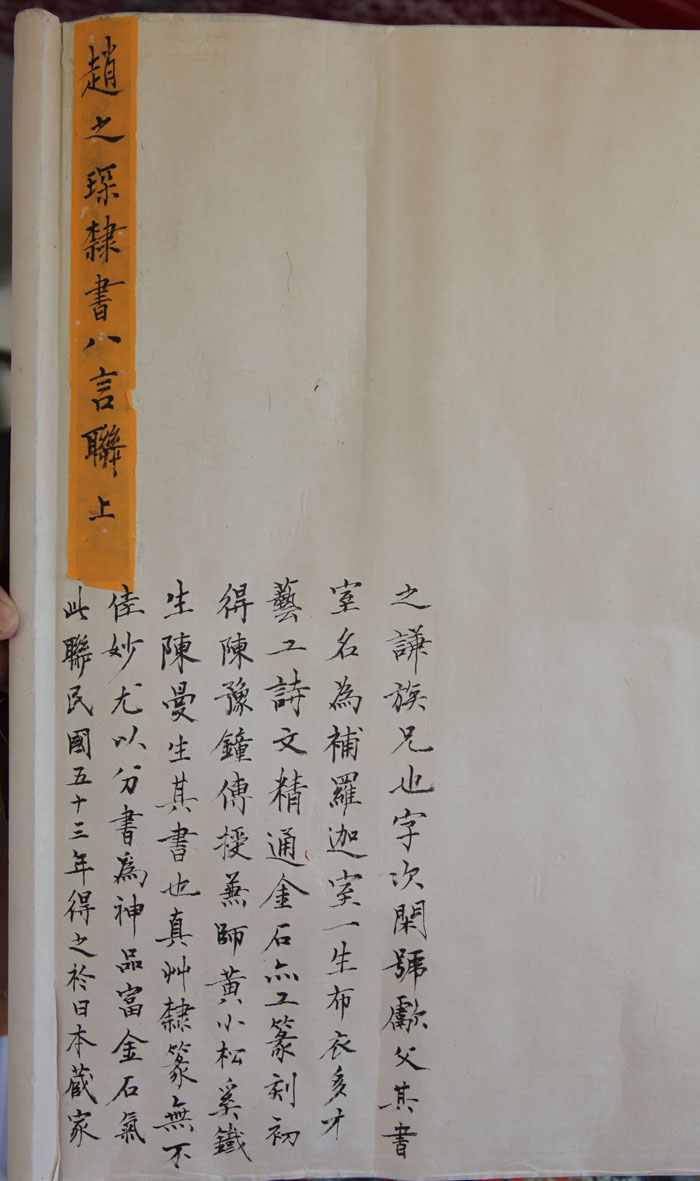 趙之琛隸書八言聯上
之謙族兄也字次閑號獻父其書
室名為補羅迦室一生布衣多才
藝工詩文精通金石亦工篆刻初
得陳豫鐘傳授兼師黃小松奚鐵
生陳曼生其書也真艸隸篆無不
佳妙尤以分書為神品富金石氣
此聯民國五十三年得之於日本藏家